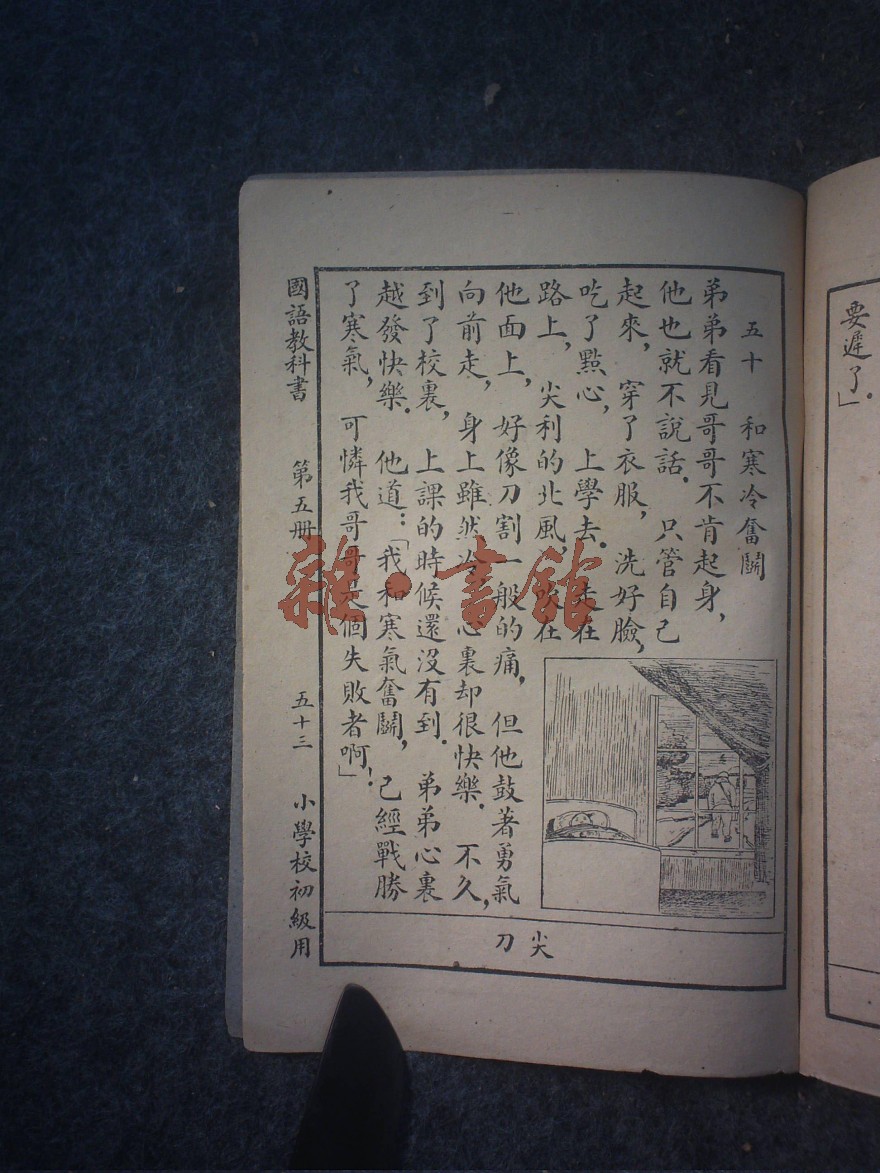 要遲了」
五十 和寒冷奮鬭
弟弟看見哥哥不肯起身，
他也就不說話．只管自己
起來，穿了衣服，洗好臉，
吃了點心，上學去．走在
路上，尖利的北風，吹在
他面上，好像刀割一般的痛，但他鼓著勇氣，
向前走，身上雖然冷，心裏却很快樂．不久，
到了校裏，上課的時候還沒有到．弟弟心裏
越發快樂．他道：「我和寒氣奮鬭，已經戰勝
了寒氣，可憐我哥哥是個失敗者啊！」
尖
刀
國語教科書 第五册 五十三 小學校初級用
雜·書館